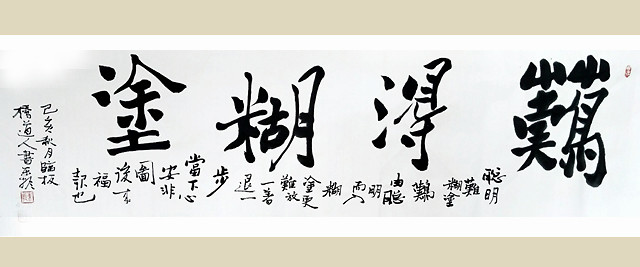 難得糊塗
聰明
難
糊塗
難
由聰
明
而入
糊
塗更
難放
一著
退一
步
當下心
安非
圖
後來
福
報也
己亥秋月臨板
橋道人書